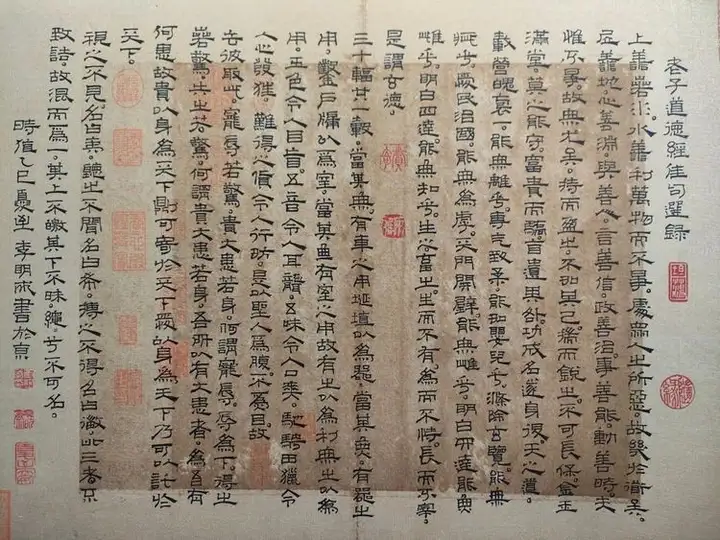 老子道德經佳句選錄
上善若水。水善利萬物而不爭。處眾人之所惡。故幾於道矣。
居善地。心善淵。與善人。言善信。政善治。事善能。動善時。夫
惟不爭。故無尤矣。持而盈之。不如其已。揣而銳之。不可長保。金玉
滿堂。莫之能守。富貴而驕。自遺其咎。功成名遂身退。天之道。
載營魄袌一。能無離乎。專气致柔。能如嬰兒乎。滌除玄覽。能無
疵乎。愛民治國。能無為虖。天門開闢。能無雌乎。明白四達。能無
雌乎。明白四達。能無知乎。生之畜之。生而不有。為而不恃。長而不宰。
是謂玄德。
三十輻共一轂。當其無。有車之用。埏埴以為器。當其無。有器之
用。鑿戶牖以為室。當其無有室之用。故有之以為利。無之以為
用。五色令人目盲。五音令人耳聾。五味令人口爽。馳騁田獵令
人心發狂。難得之貨。令人行妨。是以聖人為腹。不為目。故
去彼取此。寵辱若驚。貴大患若身。何謂寵辱。辱為下。得之
若驚。失之若驚。何謂貴大患若身。吾所以有大患者。為吾有
何患故貴以身為天下則可寄於天下。愛以身為天下乃可以託於
天下。
視之不見。名曰夷。聽之不聞名曰希。搏之不得。名曰微。此三者不
致詰。故混而為一。其上不皦其下不昧。繩兮不可名。
時值乙巳夏至 李明 書於京